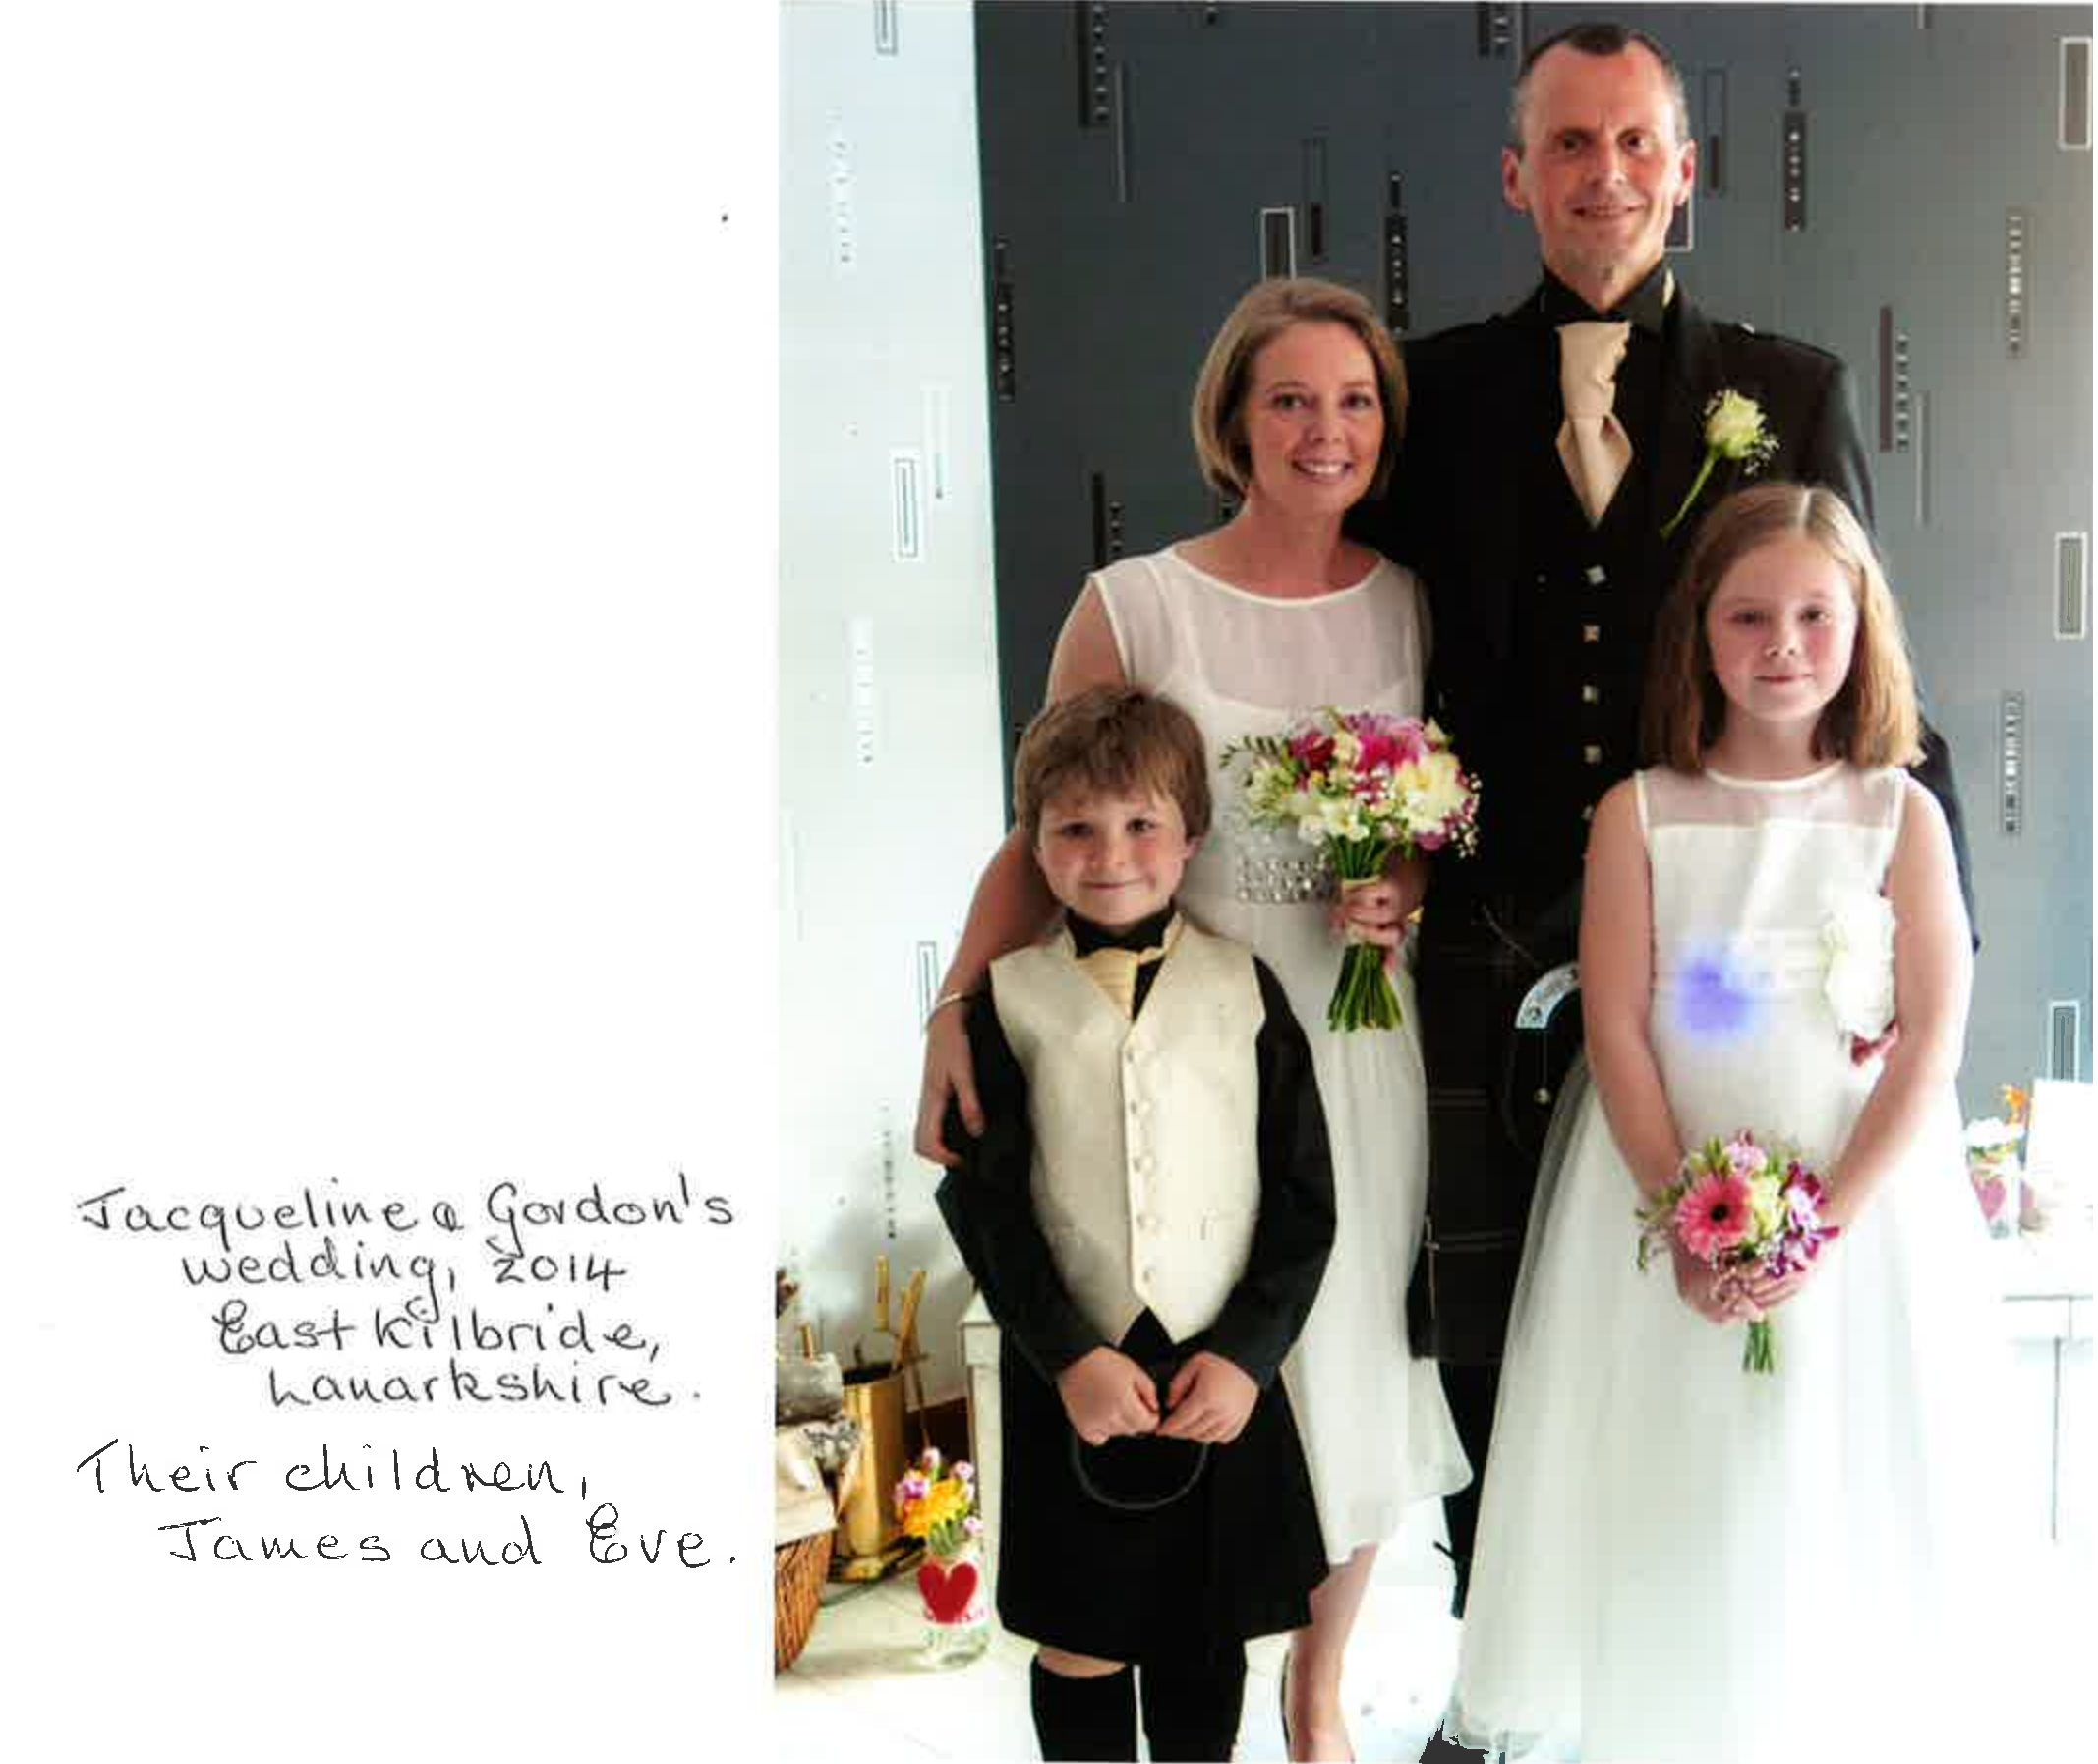 Jacqueline & Gordon's
wedding, 2014
East Kilbride,
Lanarkshire.
Their children,
James and Eve.